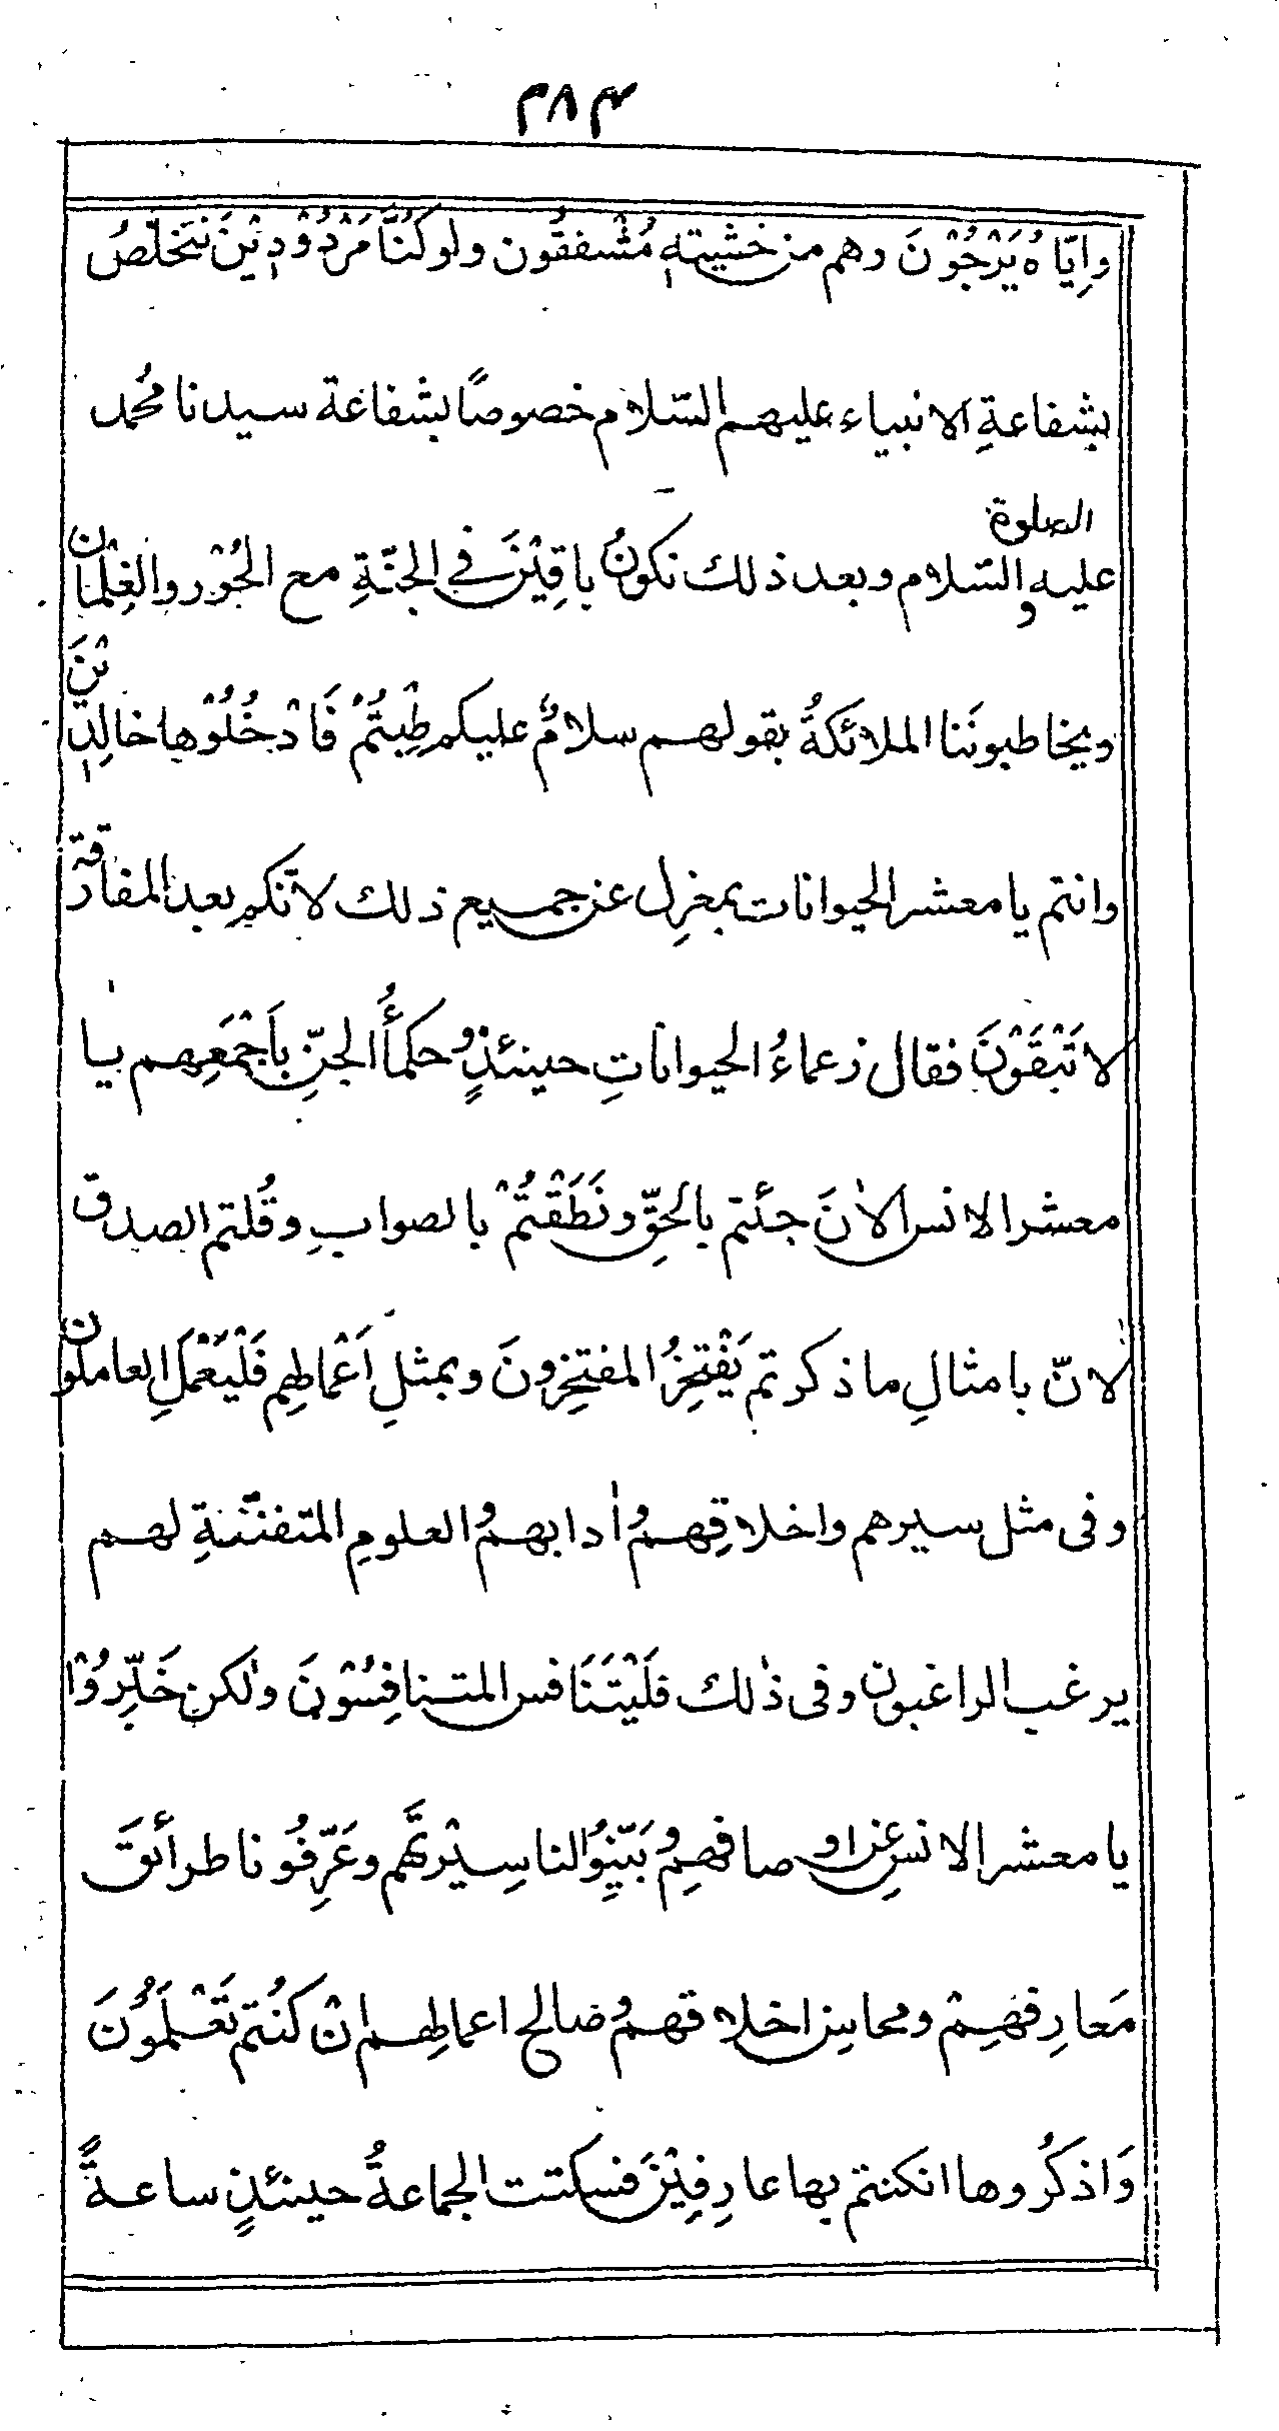 ٣٨٣
وإيّاهُ يَرْجُوْنَ وهم من خشيتهِ مُشْفقُون ولو كُنَّا مَرْدُوْدِيْنَ نتخلّصُ
بشفاعةِ الانبياء عليهم السّلام خصوصًا بشفاعة سيدنا مُحمد
عليه الصلوة والسّلام وبعد ذلك نكونُ باقِيْنَ في الجنّةِ مع الحُوْر والغِلْمان
ويخاطبونَنا الملائكةُ بقولهم سلامٌ عليكم طِبْتُمْ فَادْخُلُوْها خالِدِيْنَ
وانتم يا معشر الحيوانات بمعزِل عن جميع ذلك لانّكم بعد المفارقة
لا تَبْقَوْنَ فقال زعماءُ الحيوانات حينئذٍ وحكمأُ الجنِّ بأَجْمَعِهم يا
معشر الانس الأنَ جئتم بالحقِّ ونَطَقْتُمْ بالصوابِ وقُلتم الصدق
لانّ بامثالِ ما ذكرتم يَفْتَخِرُ المفتخِرونَ وبمثلِ اَعْمالِهم فَلْيَعْمَلِ العاملون
وفى مثل سيرهم واخلاقِهم وأدابهم والعلومِ المتفنّنةِ لهم
يرغب الراغبون وفى ذٰلك فلَيْتَنَافس المتنافِسُوْنَ ولٰكن خَبِّرُوْا
يا معشر الانسِ عن اوصافهِم وبَيّنِوُا لنا سِيْرتَهم وعَرِّفُونا طرأئقَ
مَعارِفهِمْ ومحاسِن اخلاقهم وصالح اعمالِهم انْ كنُتم تَعْلَمُوْنَ
وَاذكُروها انكنتم بها عارِفِيْنَ فسكتت الجماعةُ حينئذٍ ساعةً